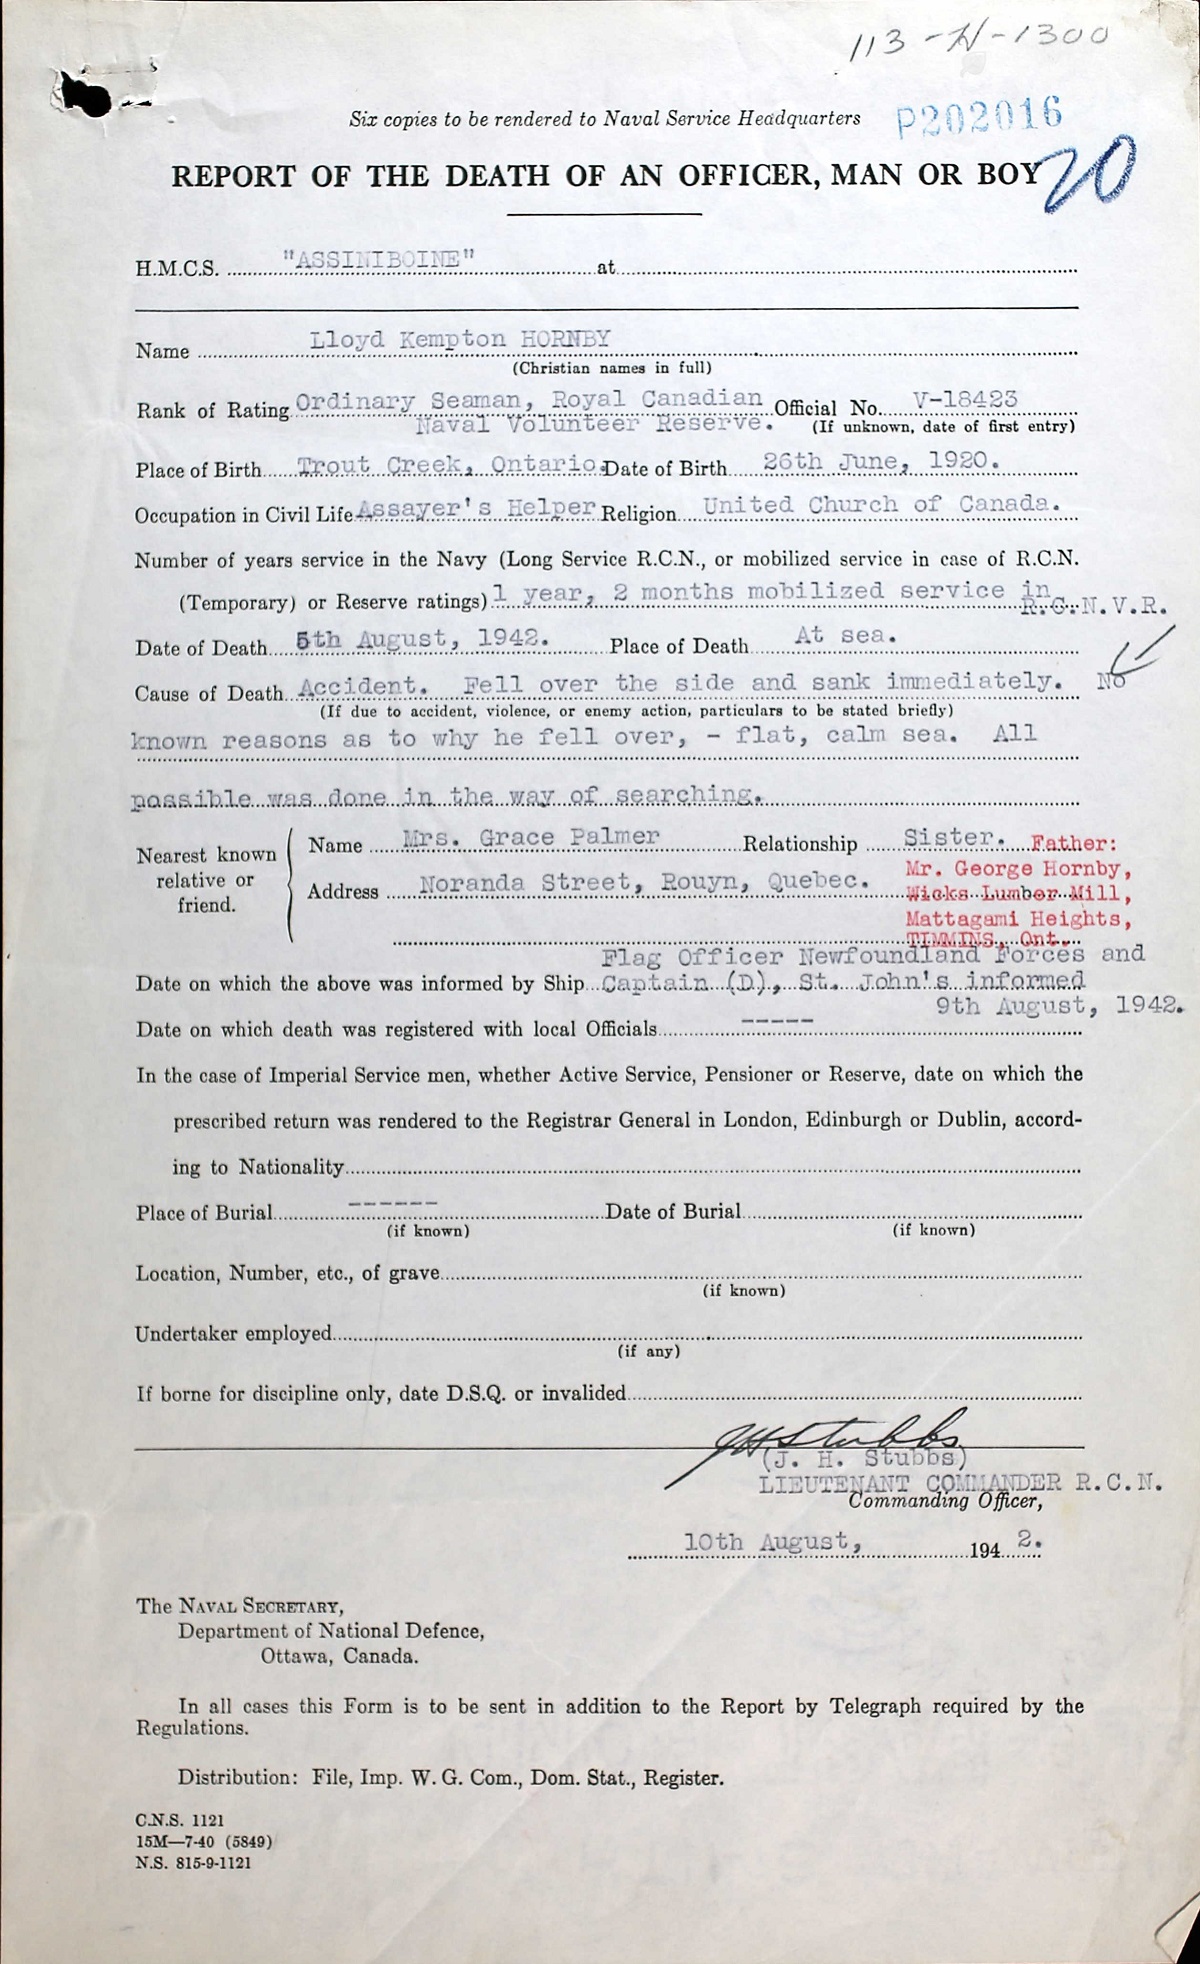 113-H-1300
Six copies to be rendered to Naval Service Headquarters P202016
REPORT OF THE DEATH OF AN OFFICER, MAN OR BOY 20
H.M.C.S. "ASSINIBOINE" at
Name Lloyd Kempton HORNBY
(Christian names in full)
Rank of Rating Ordinary Seaman, Royal Canadian Official No. V-18423
Naval Volunteer Reserve. (If unknown, date of first entry)
Place of Birth Trout Creek, Ontario. Date of Birth 26th June, 1920.
Occupation in Civil Life Assayer's Helper Religion United Church of Canada.
Number of years service in the Navy (Long Service R.C.N., or mobilized service in case of R.C.N.
(Temporary) or Reserve ratings) 1 year, 2 months mobilized service in
R.C.N.V.R.
Date of Death 5th August, 1942. Place of Death At sea.
Cause of Death Accident. Fell over the side and sank immediately. No
(If due to accident, violence, or enemy action, particulars to be stated briefly)
known reasons as to why he fell over, - flat, calm sea. All
possible was done in the way of searching.
Nearest known relative or friend.
Name Mrs. Grace Palmer Relationship Sister. Father:
Address Noranda Street, Rouyn, Quebec. Mr. George Hornby,
Wicks Lumber Mill,
Mattagami Heights,
TIMMINS, Ont.
Flag Officer Newfoundland Forces and
Date on which the above was informed by Ship Captain (D), St. John's informed
9th August, 1942.
Date on which death was registered with local Officials -----
In the case of Imperial Service men, whether Active Service, Pensioner or Reserve, date on which the
prescribed return was rendered to the Registrar General in London, Edinburgh or Dublin, accord-
ing to Nationality
Place of Burial ------ Date of Burial
(if known) (if known)
Location, Number, etc., of grave
(if known)
Undertaker employed
(if any)
If borne for discipline only, date D.S.Q. or invalided
JHStubbs
(J. H. Stubbs)
LIEUTENANT COMMANDER R.C.N.
Commanding Officer,
10th August, 194 2.
The NAVAL SECRETARY,
Department of National Defence,
Ottawa, Canada.
In all cases this Form is to be sent in addition to the Report by Telegraph required by the
Regulations.
Distribution: File, Imp. W. G. Com., Dom. Stat., Register.
C.N.S. 1121
15M—7-40 (5849)
N.S. 815-9-1121